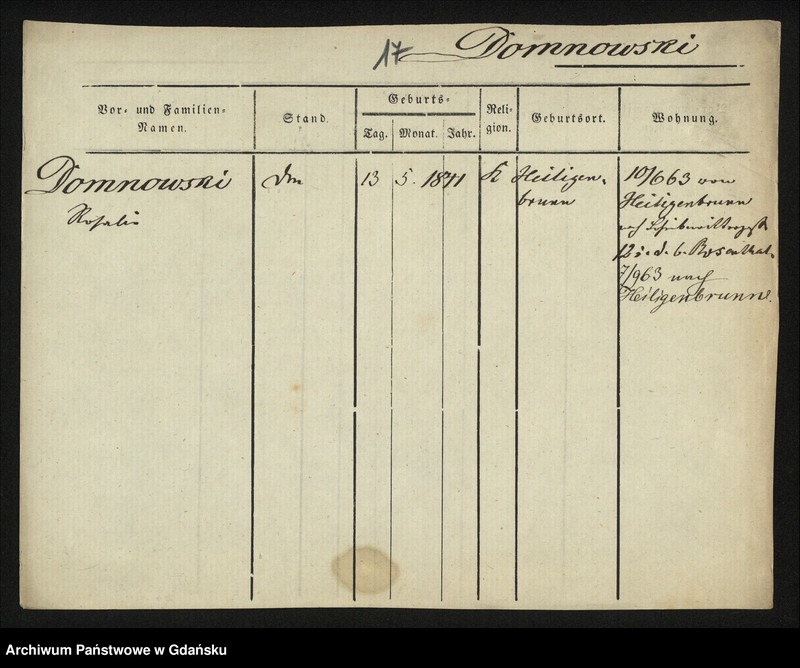 17 Domnowski
Vor- und Familien-Namen.
Stand.
Geburts-
Tag. Monat. Jahr.
Reli-gion.
Geburtsort.
Wohnung.
Domnowski
Rosalie
13 5. 1841 K Heiligen-
brunn
10/663 von
Heiligenbrunn
nach
12 i. d. b. Rosenthal.
7/963 nach
Heiligenbrunn.
Archiwum Państwowe w Gdańsku